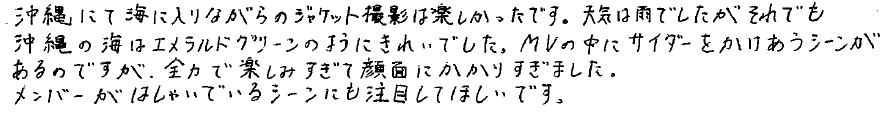 沖縄にて海に入りながらのジャケット撮影は楽しかったです。天気は雨でしたがそれでも
沖縄の海はエメラルドグリーンのようにきれいでした。MVの中にサイダーをかけあうシーンが
あるのですが、全力で楽しみすぎて顔面にかかりすぎました。
メンバーがはしゃいでいるシーンにも注目してほしいです。